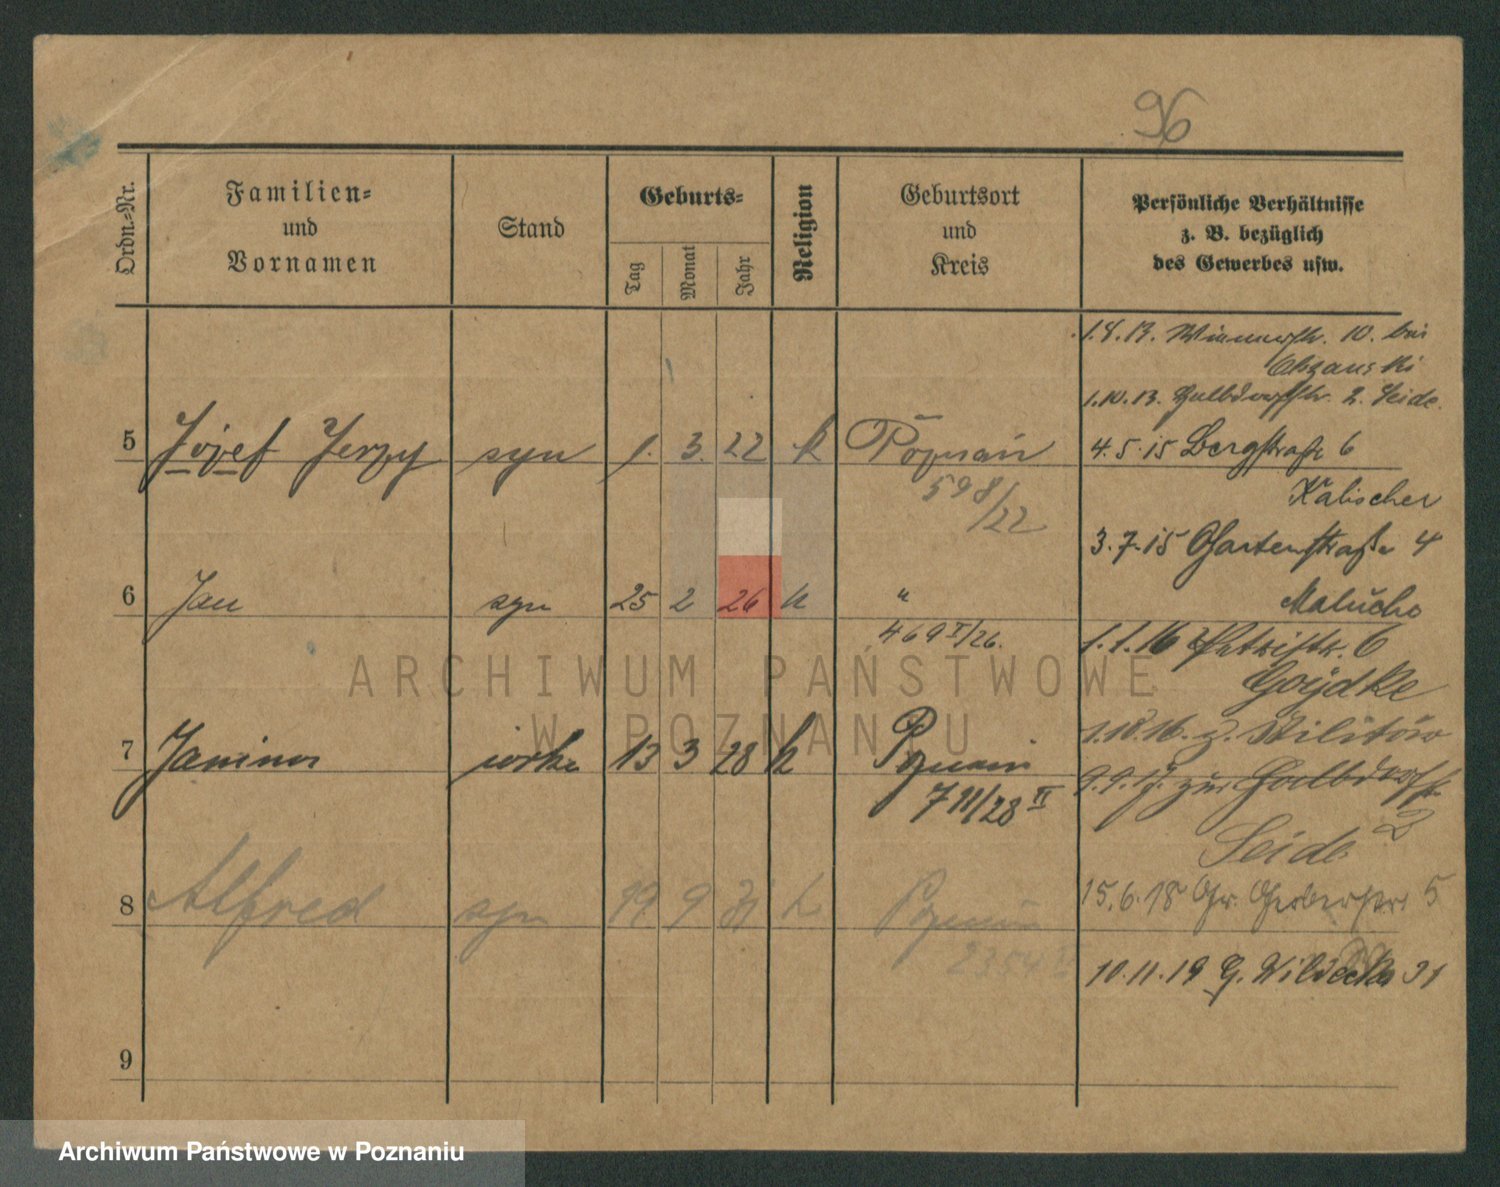 96
Ordn.-Nr.
Familien-
und
Vornamen
Stand
Geburts-
Tag
Monat
Jahr
Religion
Geburtsort
und
Kreis
Persönliche Verhältnisse
z. B. bezüglich
des Gewerbes usw.
10. bei
1.10.13. 2. Seide.
5 Józef Jerzy syn 1. 3. 22 k Poznań
598/22
4.5.15 Bergstraße 6
Kalischer
3.7.15 Gartenstraße 4
6 Jan syn 25 2 26 k "
469 I/26.
Malucho
1.1.16 6
7 Janina córka 13 3 28 k Poznań
711/28 II
1.10.16. z. Militär
9.9.17. zur Halbdorfstr.
2
Seide
8 Alfred syn 19 9 31 k Poznań
2354
15.6.18 Gr. Gerberstr. 5
10.11.19 31
9
ARCHIWUM PAŃSTWOWE
W POZNANIU
Archiwum Państwowe w Poznaniu